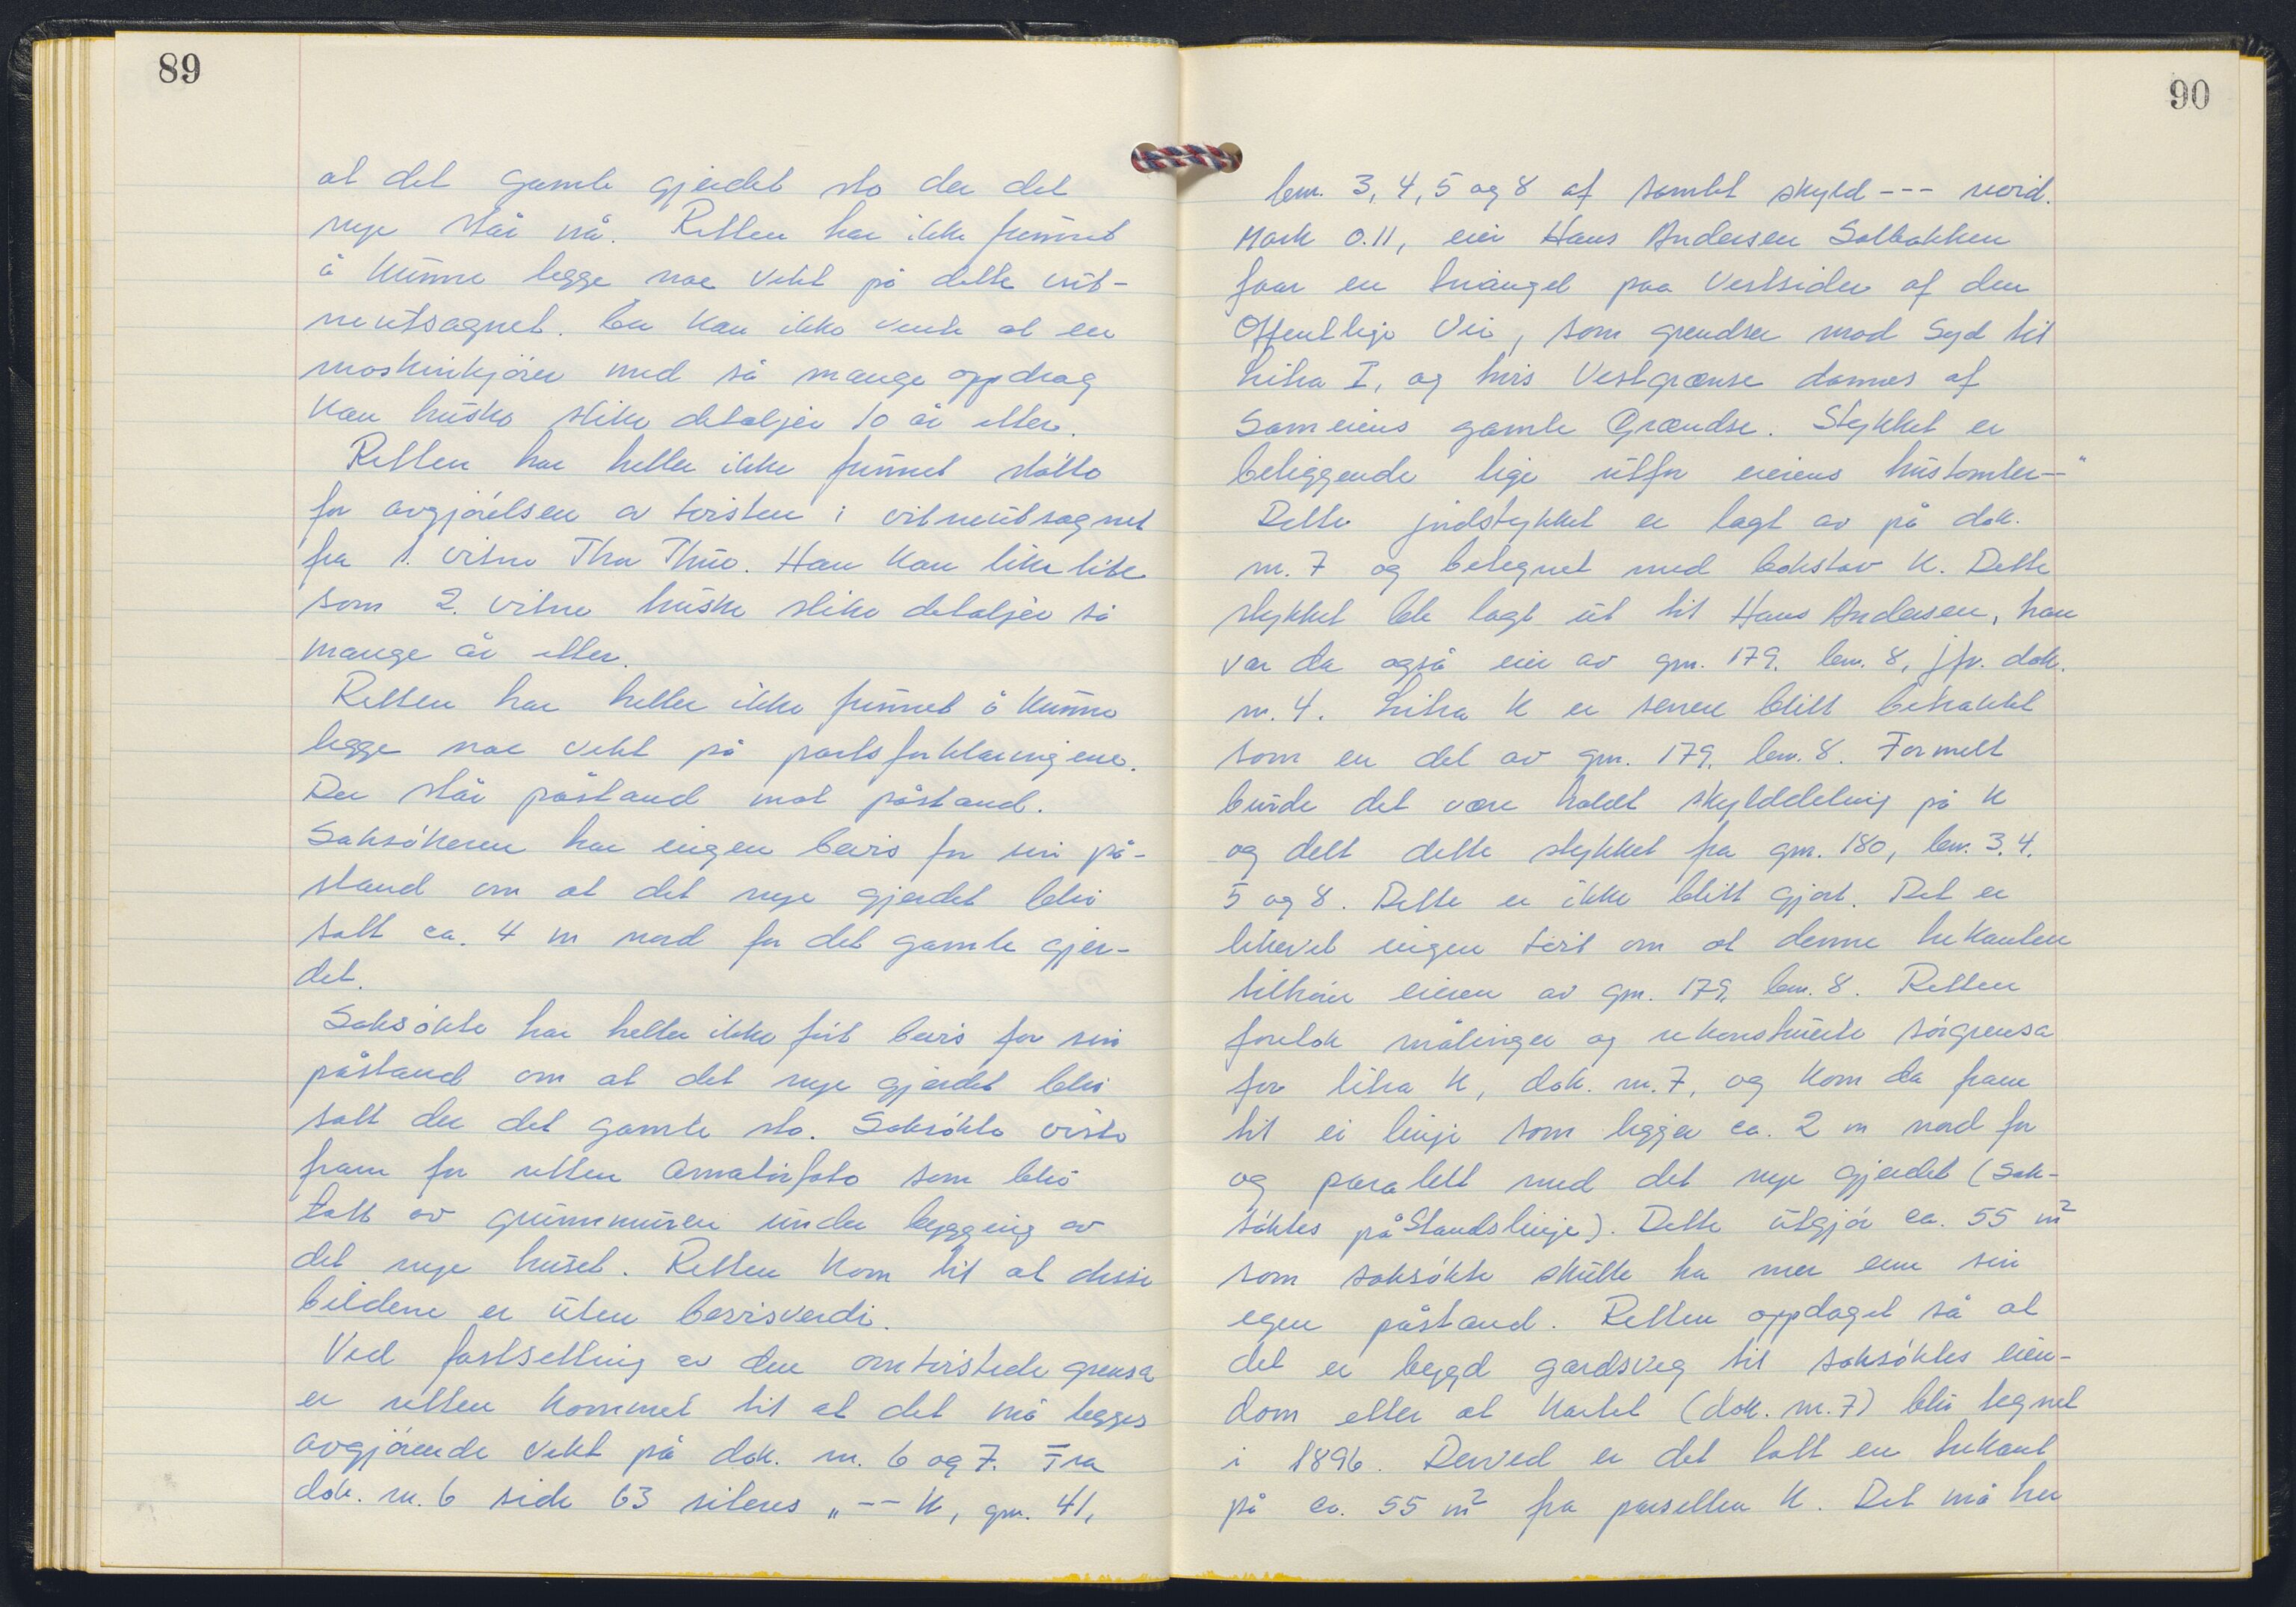 89
at det gamle gjerdet sto der det
nye står nå. Retten har ikke funnet
å kunne legge noe vekt på dette vit-
neutsagnet. En kan ikke vente at en
maskinkjører med så mange oppdrag
kan huske slike detaljer 10 år etter.
Retten har heller ikke funnet støtte
for avgjørelsen av tvisten i vitneutsagnet
fra 1. vitne Thor Thuv. Han kan like lite
som 2. vitne huske slike detaljer så
mange år etter.
Retten har heller ikke funnet å kunne
legge noe vekt på partsforklaringene.
Der står påstand mot påstand.
Saksøkeren har ingen bevis for sin på-
stand om at det nye gjerdet blei
satt ca. 4 m nord for det gamle gjer-
det.
Saksøkte har heller ikke ført bevis for sin
påstand om at det nye gjerdet blei
satt der det gamle sto. Saksøkte viste
fram for retten amatørfoto som blei
tatt av grunnmuren under bygging av
det nye huset. Retten kom til at disse
bildene er uten bevisverdi.
Ved fastsetting av den omtvistede grensa
er retten kommet til at det må legges
avgjørende vekt på dok. nr. 6 og 7. Fra
dok. nr. 6 side 63 siteres „-- K, gnr. 41,
90
bnr. 3, 4, 5 og 8 af samlet skyld --- revid.
Mark 0.11, eier Hans Andersen Solbakken
faar en triangel paa Vestsiden af den
Offentlige Vei, som grendser mod Syd til
Litra I, og hvis Vestgrænse dannes af
Sameiens gamle Grændse. Stykket er
beliggende lige utfor eierens hustomter--"
Dette jordstykket er lagt av på dok.
nr. 7 og betegnet med bokstav K. Dette
stykket ble lagt ut til Hans Andersen, han
var da også eier av gnr. 179, bnr. 8, jfr. dok.
nr. 4. Litra K er senere blitt betraktet
som en del av gnr. 179, bnr. 8. Formelt
burde det være holdt skylddeling på K
og delt dette stykket fra gnr. 180, bnr. 3, 4,
5 og 8. Dette er ikke blitt gjort. Det er
likevel ingen tvil om at denne trekanten
tilhører eieren av gnr. 179, bnr. 8. Retten
foretok målinger og rekonstruerte sørgrensa
for litra K, dok. nr. 7, og kom da fram
til ei linje som ligger ca. 2 m nord for
og paralell med det nye gjerdet (sak-
søktes påstandslinje). Dette utgjør ca. 55 m²
som saksøkte skulle ha mer enn sin
egen påstand. Retten oppdaget så at
det er bygd gardsveg til saksøktes eien-
dom etter at kartet (dok. nr. 7) blei tegnet
i 1896. Derved er det tatt en trekant
på ca. 55 m² fra parsellen K. Det må her